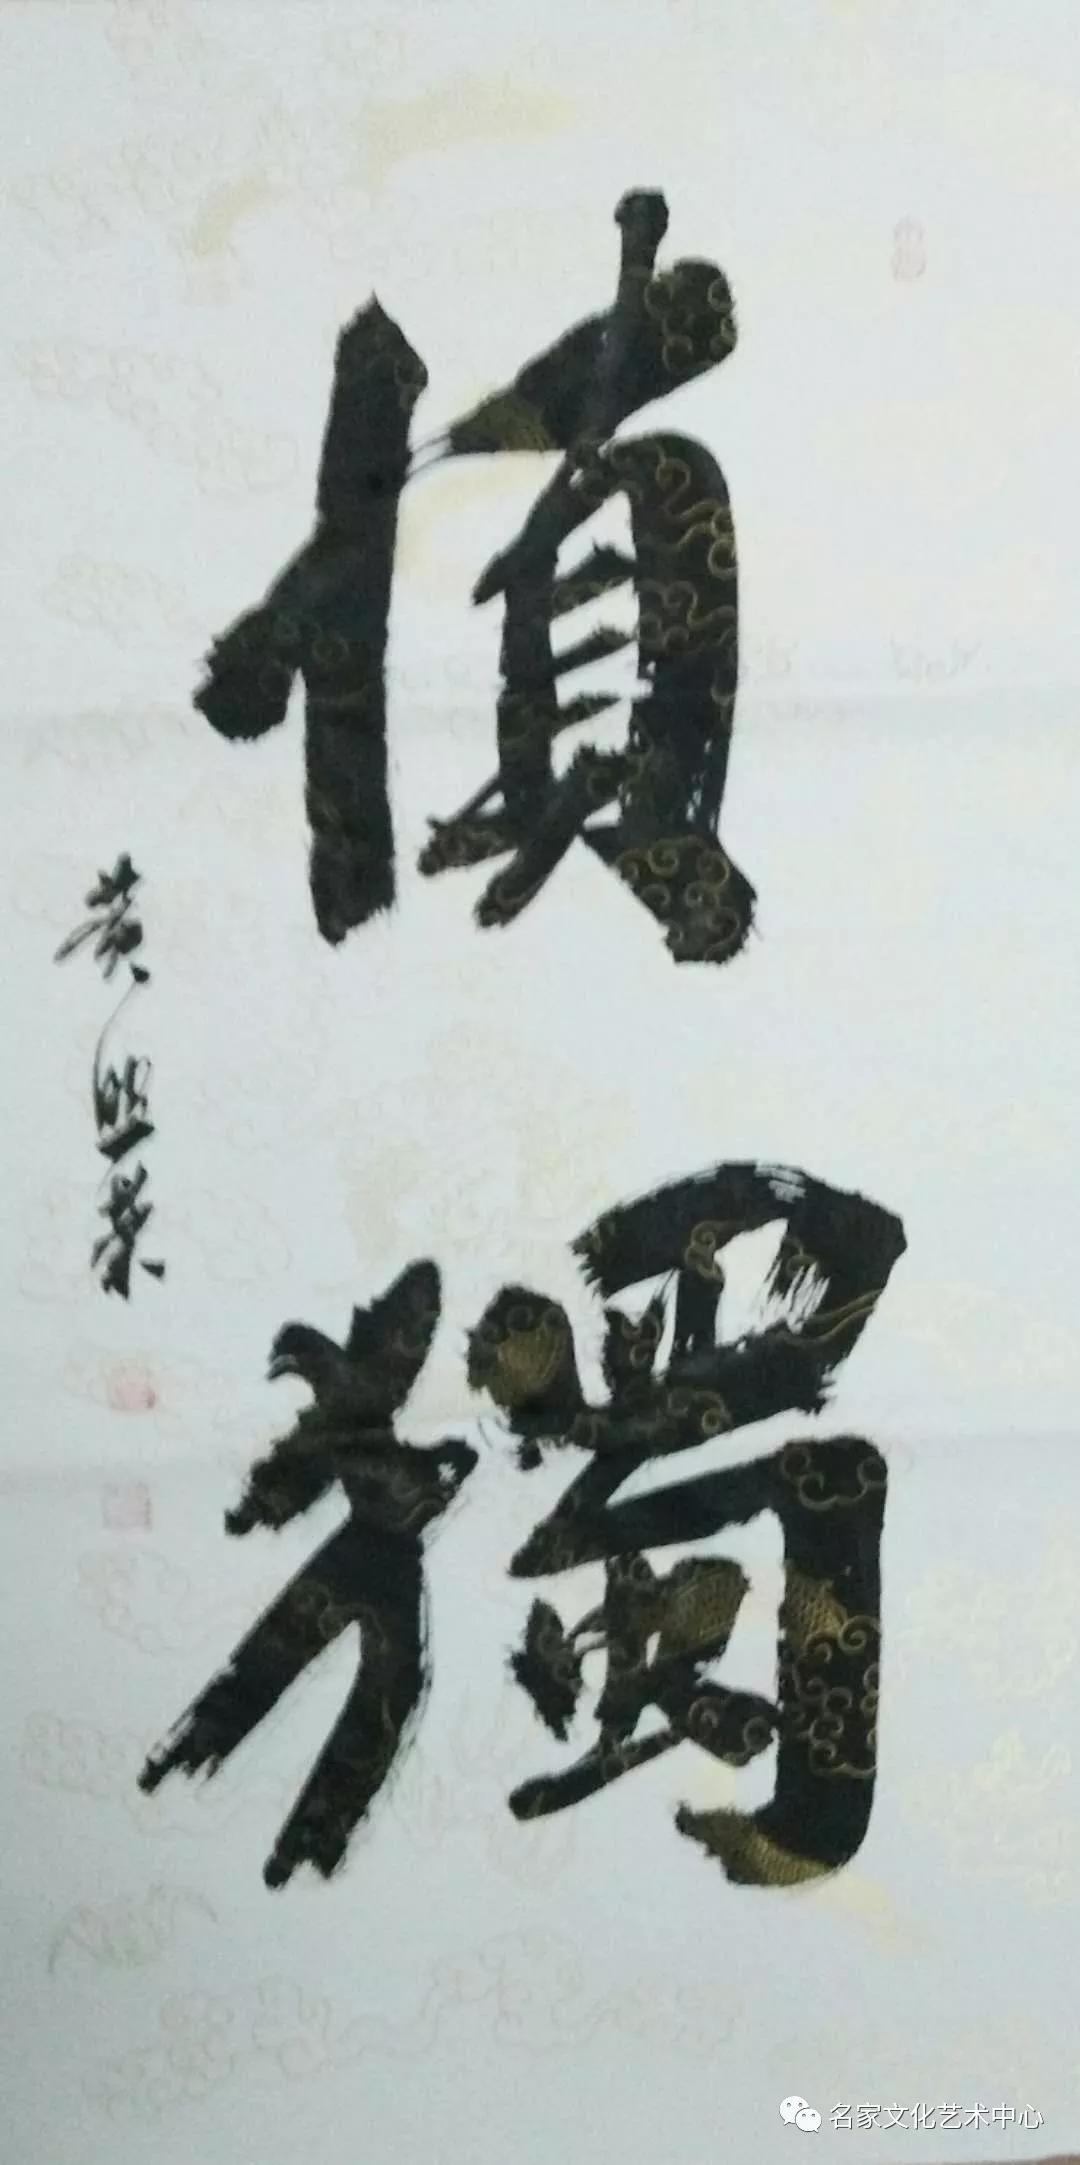 慎獨
黄照荣
名家文化艺术中心